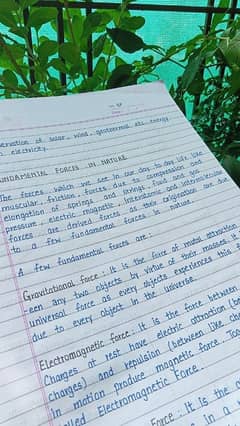 servation of solar, wind, geothermal etc. energy
electricity.
FUNDAMENTAL FORCES IN NATURE
The forces which we see in our day to day life like
muscular, friction, forces due to compression and
elongation of springs and strings, fluid and gas
pressure, electric, magnetic, interatomic and intermolecular
forces are derived forces as their originations are due
to a few fundamental forces in nature.
A few fundamental forces are :
Gravitational force : It is the force of mutual attraction
-een any two objects by virtue of their masses. It
universal force as every objects experiences this
due to every object in the universe.
Electromagnetic force : It is the force between
Charges at rest have electric attraction (be
charges) and repulsion (between like char
in motion produce magnetic force. Toge
lled Electromagnetic Force.
Force : It is the
s in a